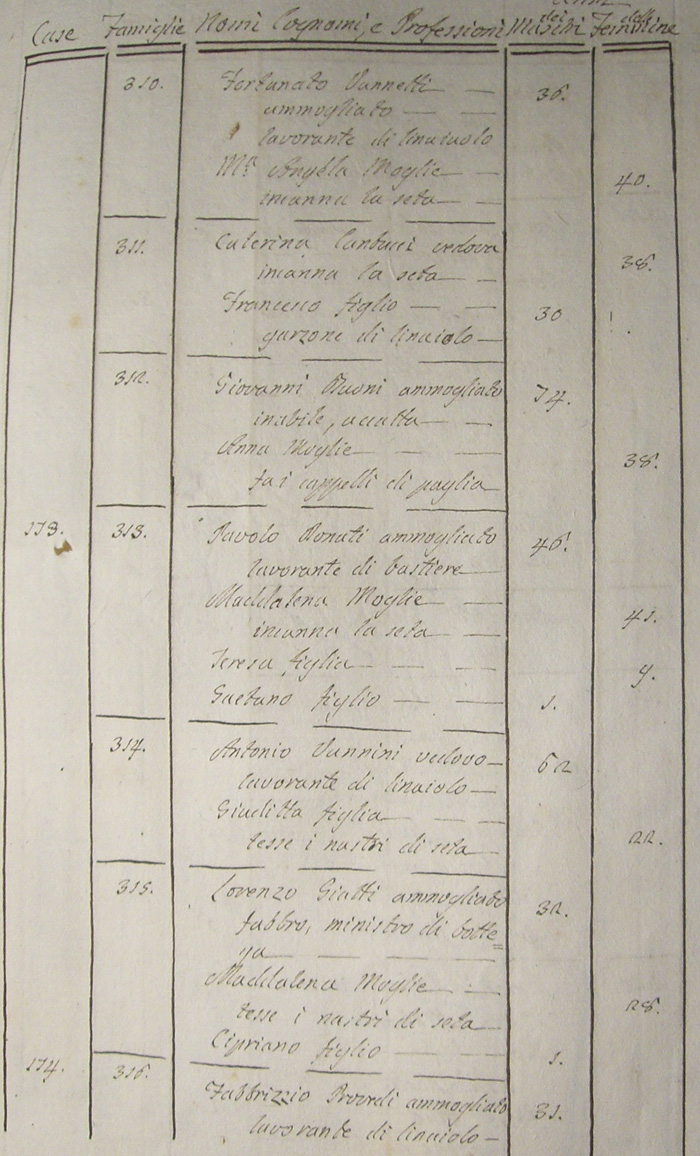 Anni
dei delle
Case Famiglie Nomi Cognomi, e Professioni Maschi Femmine
310. Fortunato Vannetti — 36.
ammogliato — —
lavorante di linaiuolo
Mª. Angela Moglie — 40.
incanna la seta —
311. Caterina Cantucci vedova 38.
incanna la seta —
Francesco figlio — — 30
garzone di linaiolo —
312. Giovanni Buoni ammogliato 74.
inabile, accatta — —
Anna Moglie — — — 38.
fa i cappelli di paglia
173. 313. Pavolo Donati ammogliato 46.
lavorante di bastiere
Maddalena Moglie — 41.
incanna la seta — —
Teresa figlia — — — 9.
Gaetano figlio — — 1.
314. Antonio Vannini vedovo — 62
lavorante di linaiolo —
Giuditta figlia — — 22.
tesse i nastri di seta
315. Lorenzo Giatti ammogliato 32.
fabbro, ministro di botte=
ga — — —
Maddalena Moglie — 28.
tesse i nastri di seta
Cipriano figlio — 1.
174. 316. Fabbrizzio Provedi ammogliato 31.
lavorante di linaiolo —